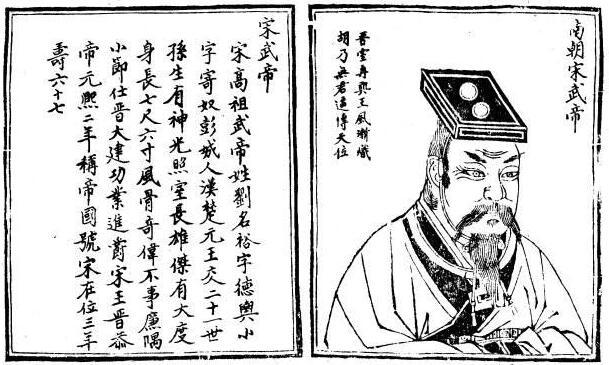 南朝宋武帝
晉室再興王風漸熾
胡乃無君遽傳天位
宋武帝
宋高祖武帝姓劉名裕字德輿小
字寄奴彭城人漢楚元王交二十一世
孫生有神光照室長雄傑有大度
身長七尺六寸風骨奇偉不事廉隅
小節仕晉大建功業進爵宋王晉恭
帝元熙二年稱帝國號宋在位三年
壽六十七